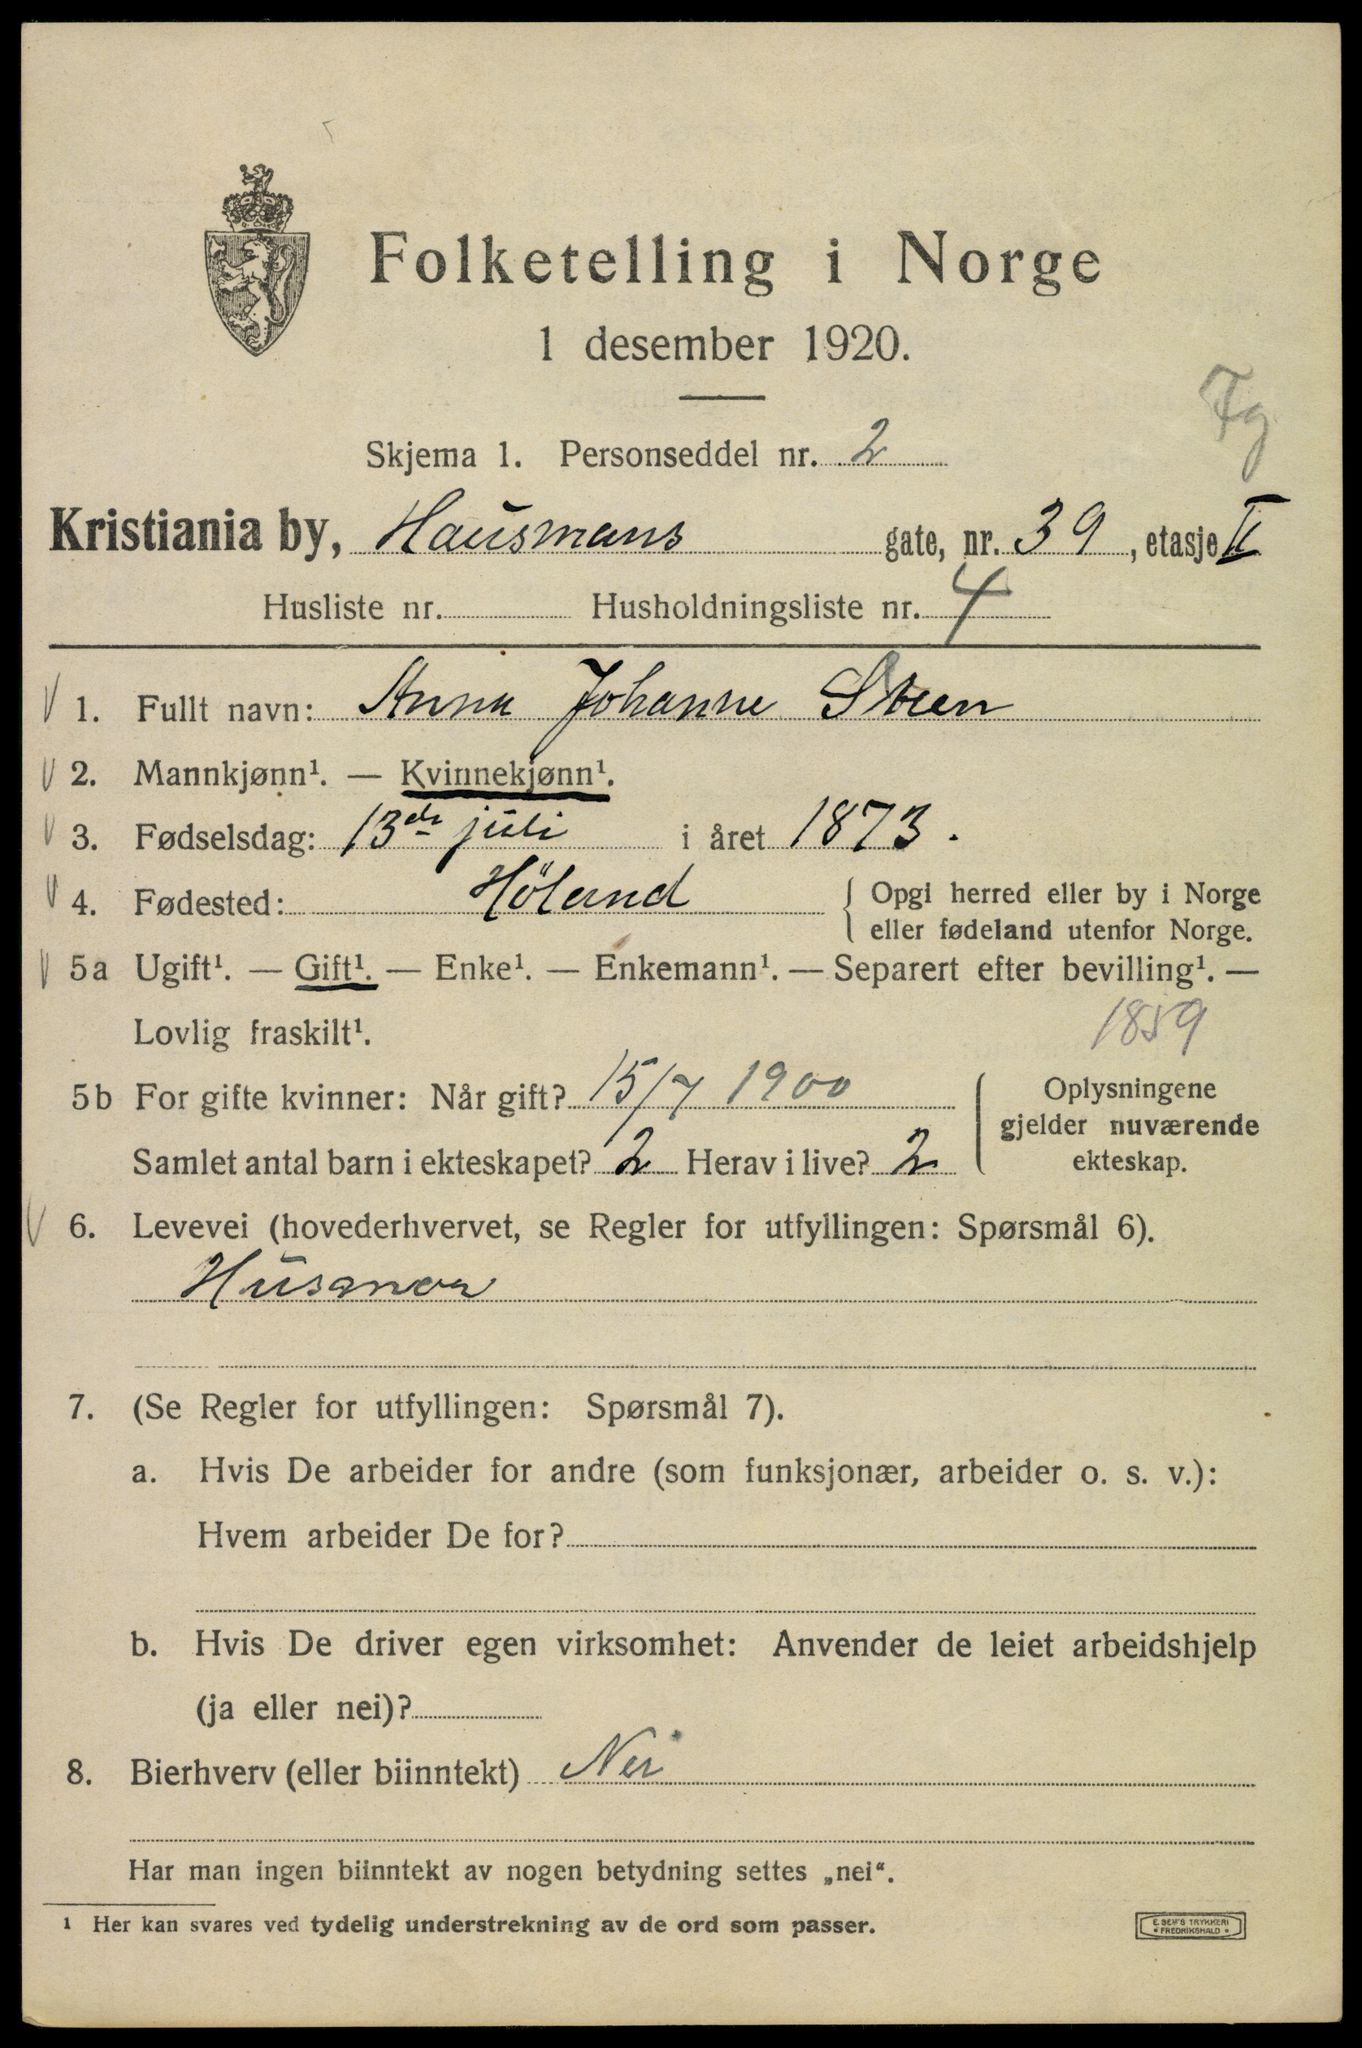 Folketelling i Norge
1 desember 1920.
Fg
Skjema 1. Personseddel nr. 2
Kristiania by, Hausmans gate, nr. 39, etasje II
Husliste nr. Husholdningsliste nr. 4
1. Fullt navn: Anna Johanne Steen
2. Mannkjønn¹. — Kvinnekjønn¹.
3. Fødselsdag: 13de juli i året 1873.
4. Fødested: Höland { Opgi herred eller by i Norge
eller fødeland utenfor Norge.
5a Ugift¹. — Gift¹. — Enke¹. — Enkemann¹. — Separert efter bevilling¹. —
Lovlig fraskilt¹. 1859
5b For gifte kvinner: Når gift? 15/7 1900
Samlet antal barn i ekteskapet? 2 Herav i live? 2
{ Oplysningene
gjelder nuværende
ekteskap.
6. Levevei (hovederhvervet, se Regler for utfyllingen: Spørsmål 6).
Husmor
7. (Se Regler for utfyllingen: Spørsmål 7).
a. Hvis De arbeider for andre (som funksjonær, arbeider o. s. v.):
Hvem arbeider De for?
b. Hvis De driver egen virksomhet: Anvender de leiet arbeidshjelp
(ja eller nei)?
8. Bierhverv (eller biinntekt) Nei
Har man ingen biinntekt av nogen betydning settes „nei“.
1 Her kan svares ved tydelig understrekning av de ord som passer.
E. SEM'S TRYKKERI
FREDRIKSHALD